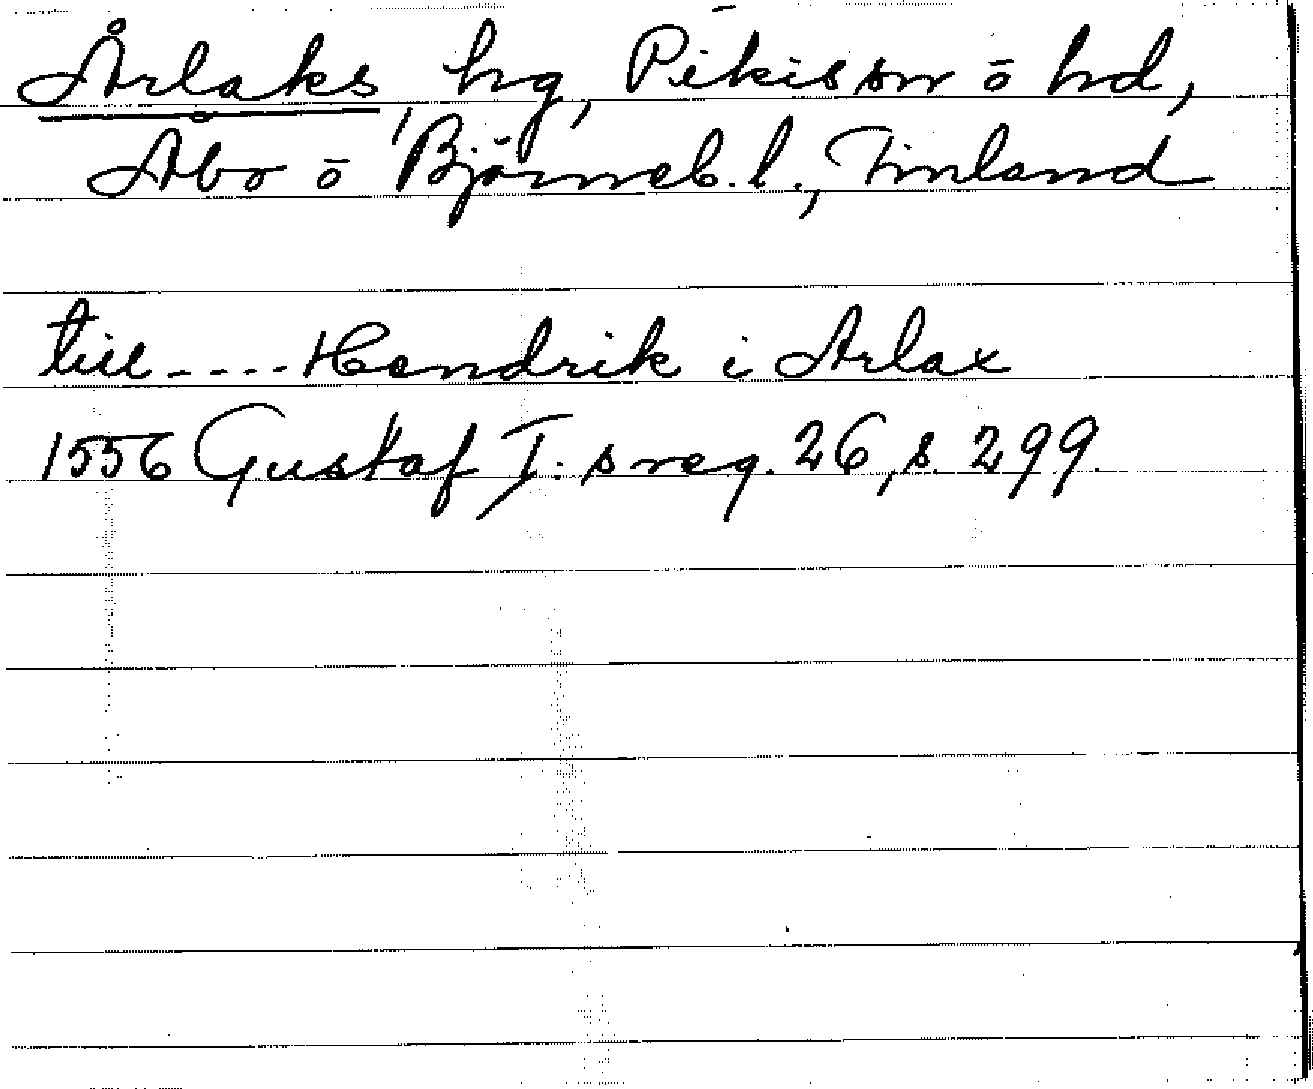 Årlaks, hg, Pikis sn ō hd,
Åbo ō Björneb. l., Finland
till .... Hendrik i Arlax
1556 Gustaf I. s reg. 26, s. 299.